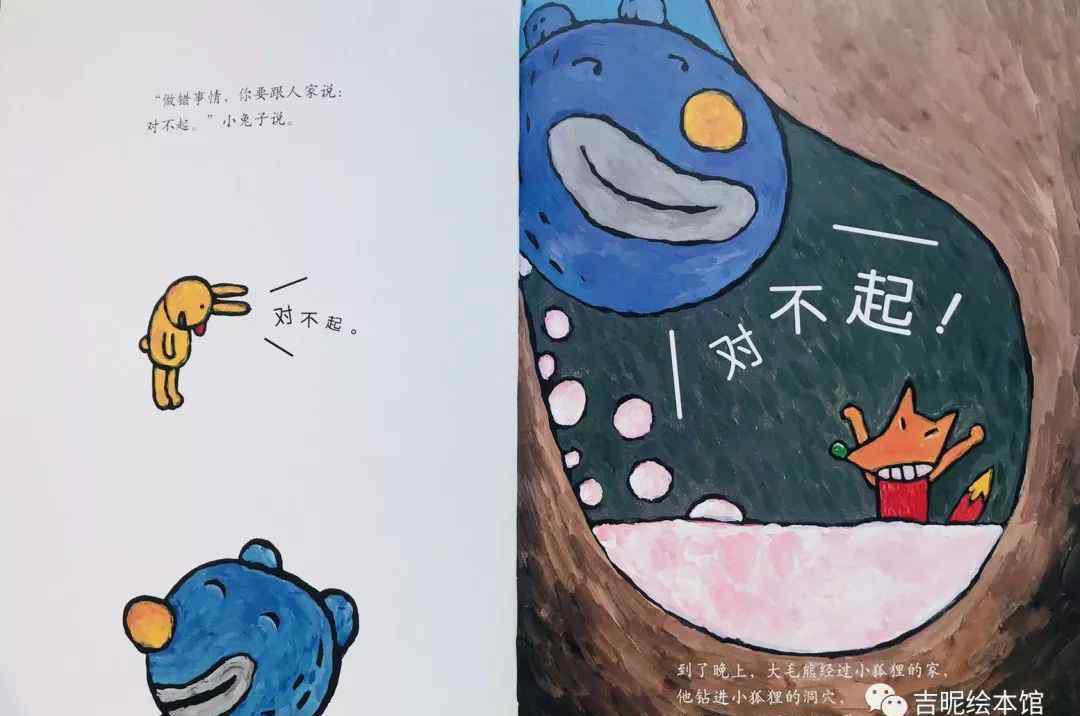 “做错事情，你要跟人家说：
对不起。”小兔子说。
对不起。
对不起！
到了晚上，大毛熊经过小狐狸的家，
他钻进小狐狸的洞穴，
吉昵绘本馆